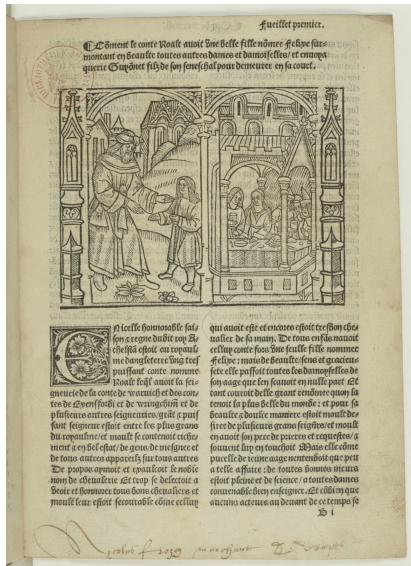 Fueillet premier.
Cõment le conte Roalt avoit vne belle fille nõmee Felixe sur-
montant en beaulte toutes autres dames et damoiselles / et enuoya
querir Guyõnet filz de son seneschal pour demeurer en sa court.
EN icelle honnorable sai-
son q̃ regne dudit roy A-
thelstã estoit ou royaul-
me dangleterre vng tres
puissant conte nomme
Roalt leq̃l auoit la sei-
gneurie de la conte de warwich des con-
tes de
plusieurs autres seigneuries / grãt &amp; puis-
sant seigneur estoit entre les plus grans
du royaulme / et moult se contenoit riche-
ment &amp; en bel estat / de gens de mesgnee et
de tous autres appareilz sur tous autres
De propos aymoit et exaulcoit le noble
nom de cheualerie Et trop se delectoit a
veoir et honnorer tous bons cheualiers et
moult leur estoit secourable cõme celluy
qui auoit este et encores estoit tresbon che-
ualier de sa main. De tous enfãs nauoit
celluy conte fors vne seulle fille nommee
Felixe: mais de beaulte / sens et gracieu-
sete elle passoit toutes les damoyselles de
son aage que len sceust en nulle part Et
tant couroit delle grant rendnee quon la
tenoit la plus belle du monde: et pour sa
beaulte &amp; doulce maniere estoit moult de-
siree de plusieurs grans seignrs / et moult
en auoit son pere de prieres et requestes / &amp;
souuent luy en touchoit Mais elle cõme
pucelle de ieune aage nentendoit que peu
a telle affaire: de toutes bonnes meurs
estoit pleine et de science / a toutes dames
conuenable bien enseigner. Et cõbien que
aucuns acteurs au deuant de ce temps se
B i